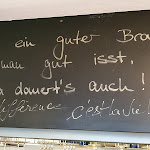 ein guter Bra
man gut isst,
dauert's auch!
différence c'est la vie!